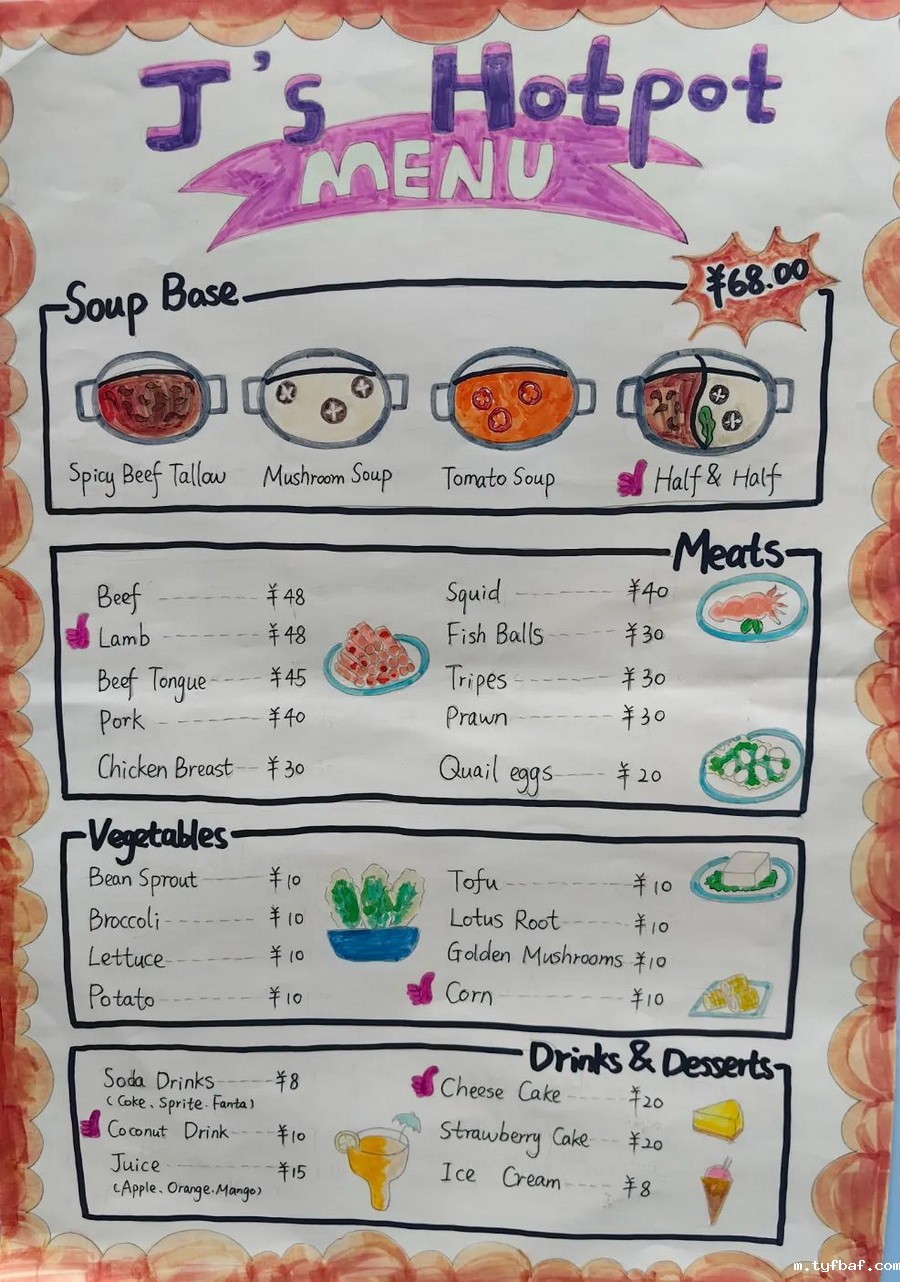 J's Hotpot
MENU
Soup Base
¥68.00
Spicy Beef Tallow
Mushroom Soup
Tomato Soup
Half & Half
Meats
Beef ¥48
Lamb ¥48
Beef Tongue ¥45
Pork ¥40
Chicken Breast ¥30
Squid ¥40
Fish Balls ¥30
Tripes ¥30
Prawn ¥30
Quail eggs ¥20
Vegetables
Bean Sprout ¥10
Broccoli ¥10
Lettuce ¥10
Potato ¥10
Tofu ¥10
Lotus Root ¥10
Golden Mushrooms ¥10
Corn ¥10
Drinks & Desserts
Soda Drinks ¥8
(Coke、Sprite、Fanta)
Coconut Drink ¥10
Juice ¥15
(Apple、Orange、Mango)
Cheese Cake ¥20
Strawberry Cake ¥20
Ice Cream ¥8
m.tyfbaf.com